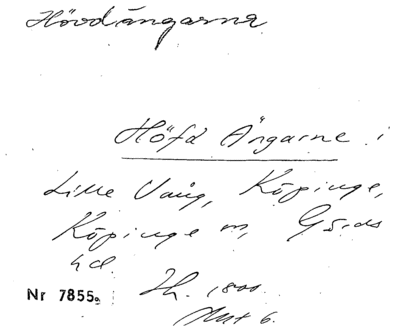 Hövdängarna
Höfd Ängarne i
Lille Vång, Köpinge,
Köpinge sn, Gärds
hd.
Nr 7855. Sk. 1800
Akt 6.